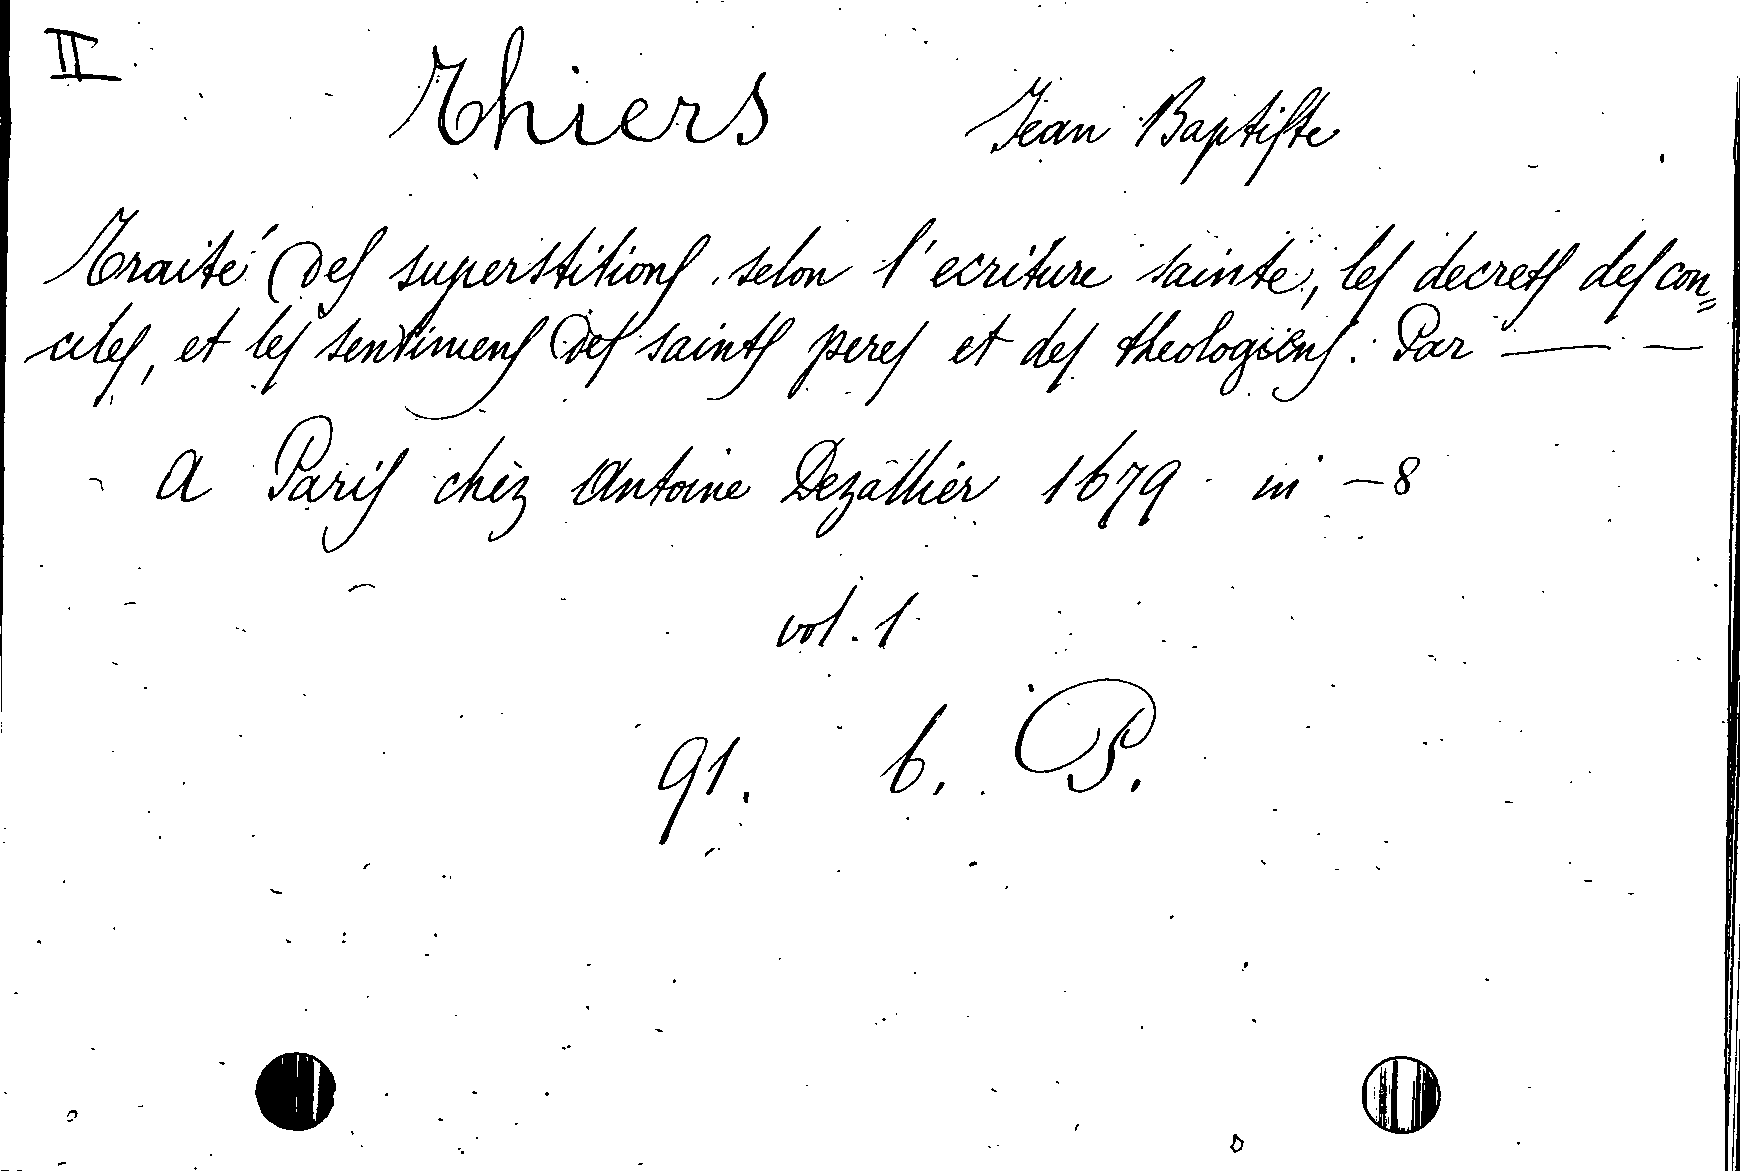 II
Thiers Jean Baptiste
Traité des superstitions selon l'ecriture sainte, les decrets des con=
ciles, et les sentimens des saints peres et des theologiens. Par — —
A Paris chèz Antoine Dezallier 1679 in -8
vol. 1
91. b. P.